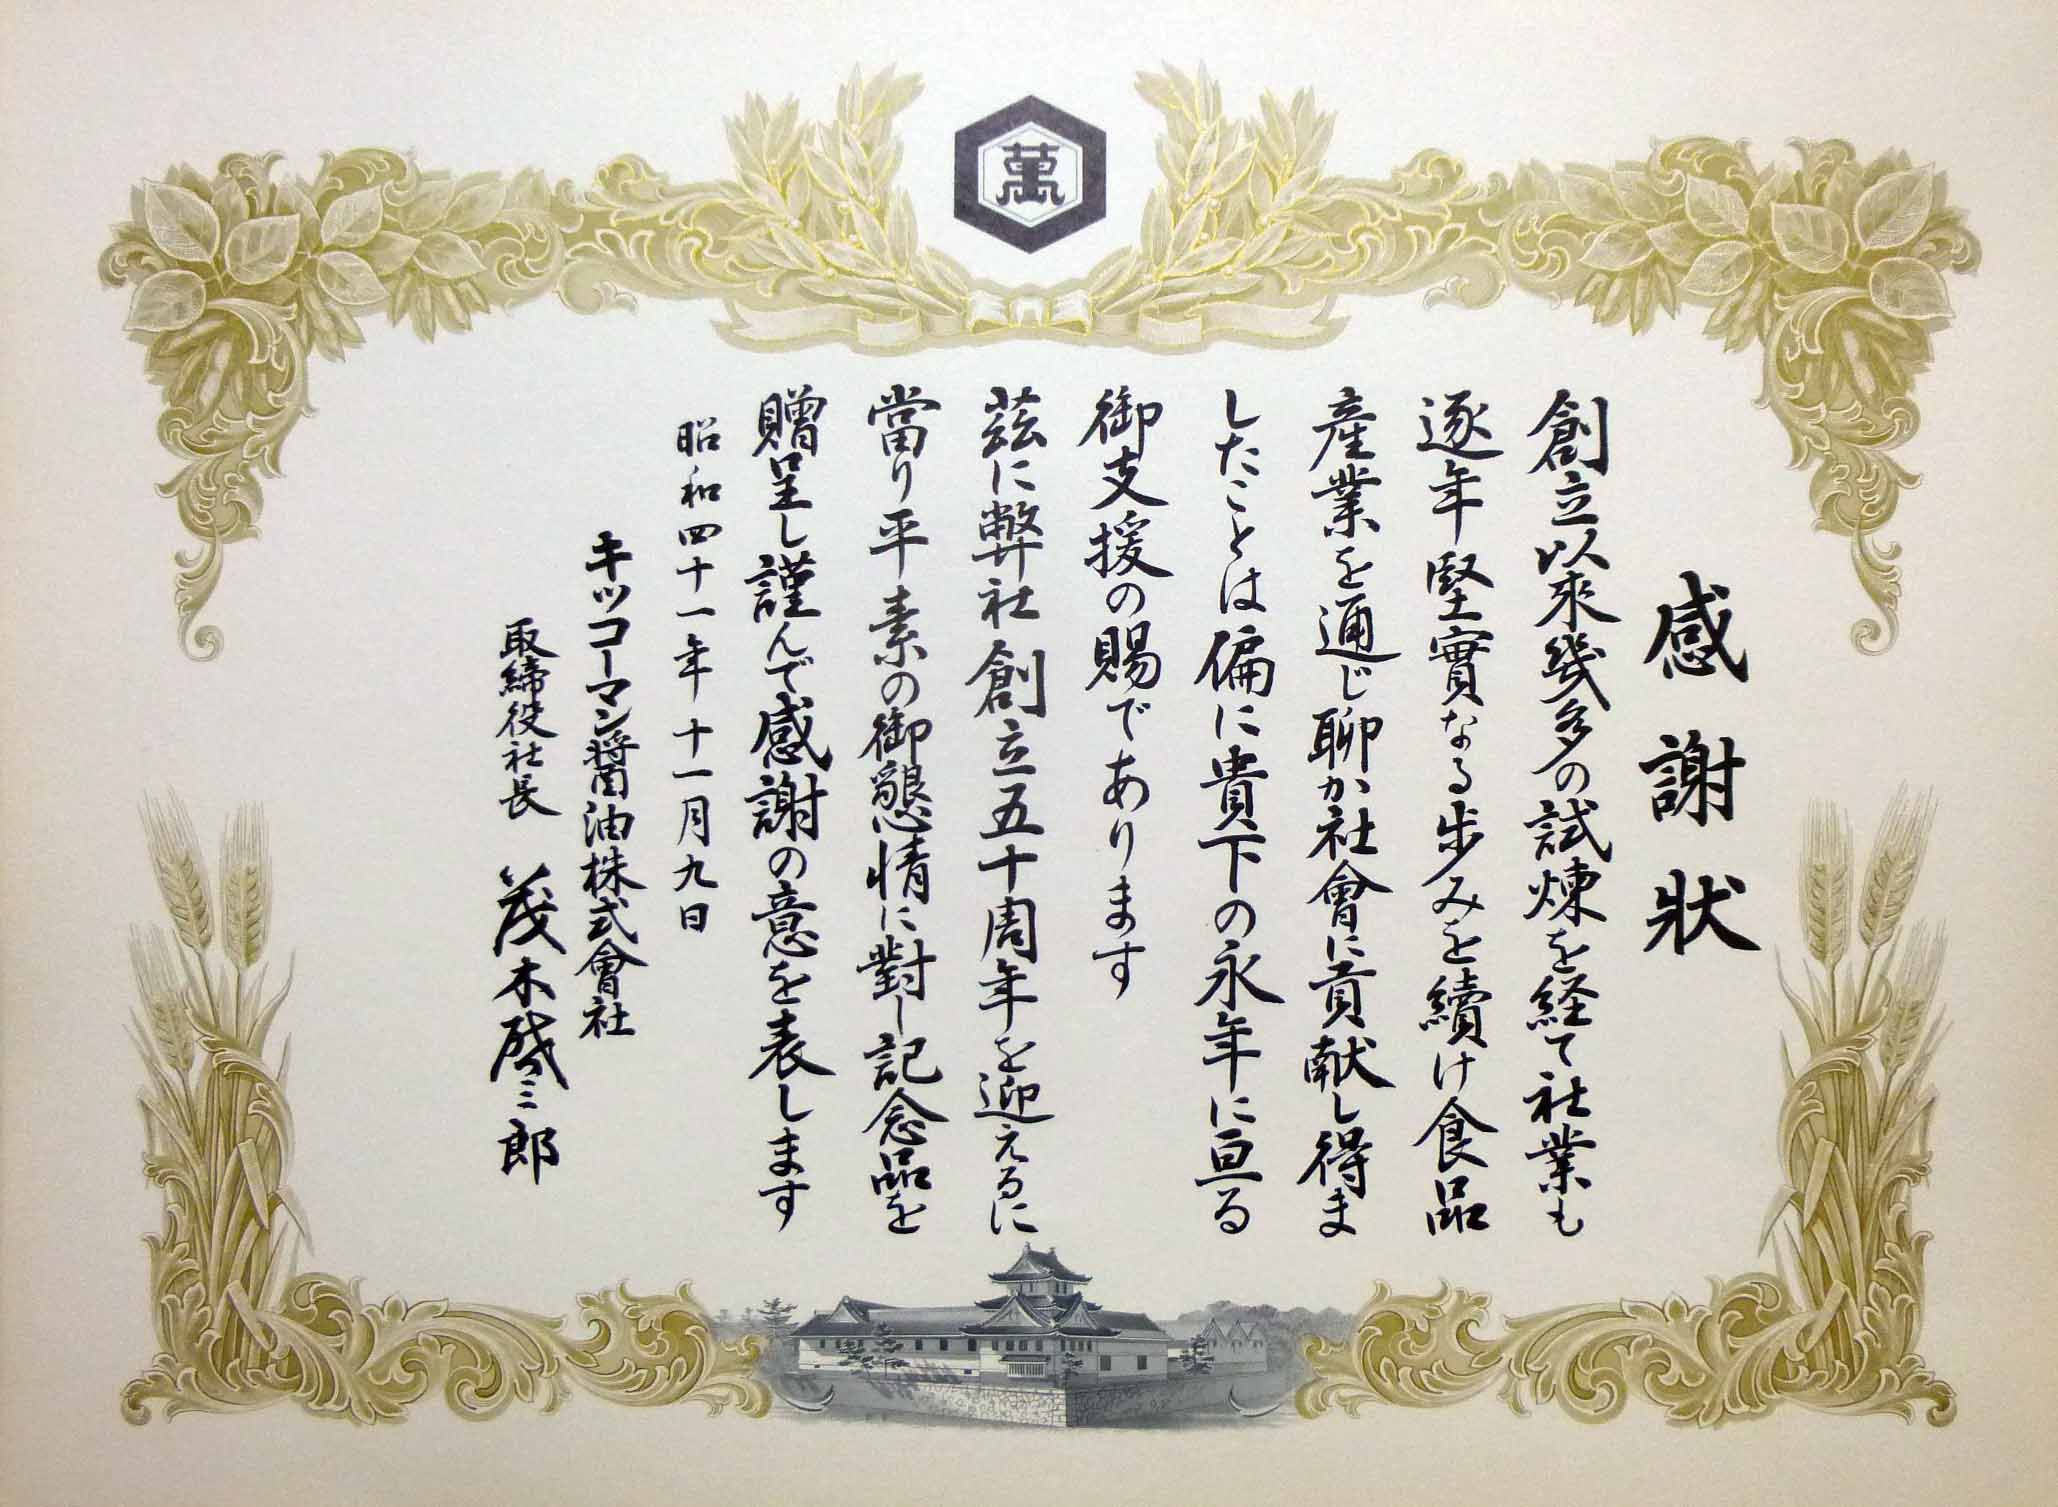 萬
感謝狀
創立以來幾多の試煉を経て社業も
逐年堅實なる歩みを續け食品
産業を通じ聊か社會に貢献し得ま
したことは偏に貴下の永年に亘る
御支援の賜であります
茲に弊社創立五十周年を迎えるに
當り平素の御懇情に對し記念品を
贈呈し謹んで感謝の意を表します
昭和四十一年十一月九日
キッコーマン醤油株式會社
取締役社長 茂木啓三郎